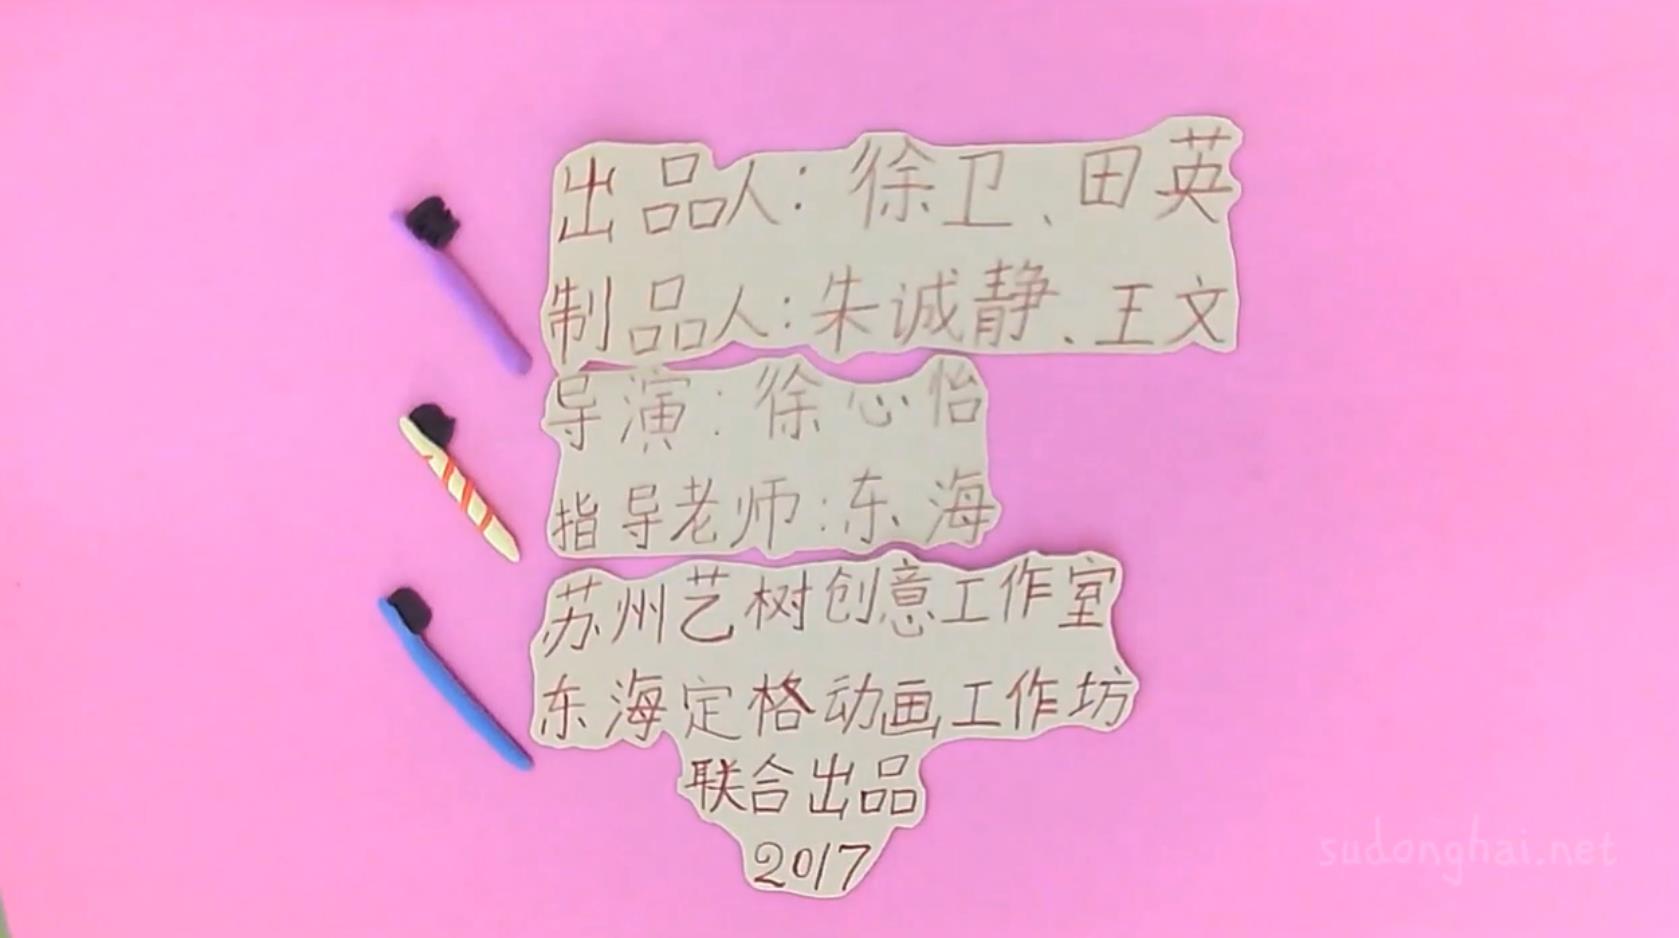 出品人：徐卫、田英
制品人：朱诚静、王文
导演：徐心怡
指导老师：东海
苏州艺树创意工作室
东海定格动画工作坊
联合出品
2017
sudonghai.net